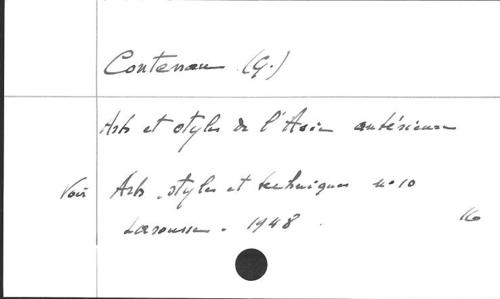 Contenau (G.)
Arts et styles de l'Asie antérieure
Voir Arts, styles et techniques no 10
Larousse. 1948.
16